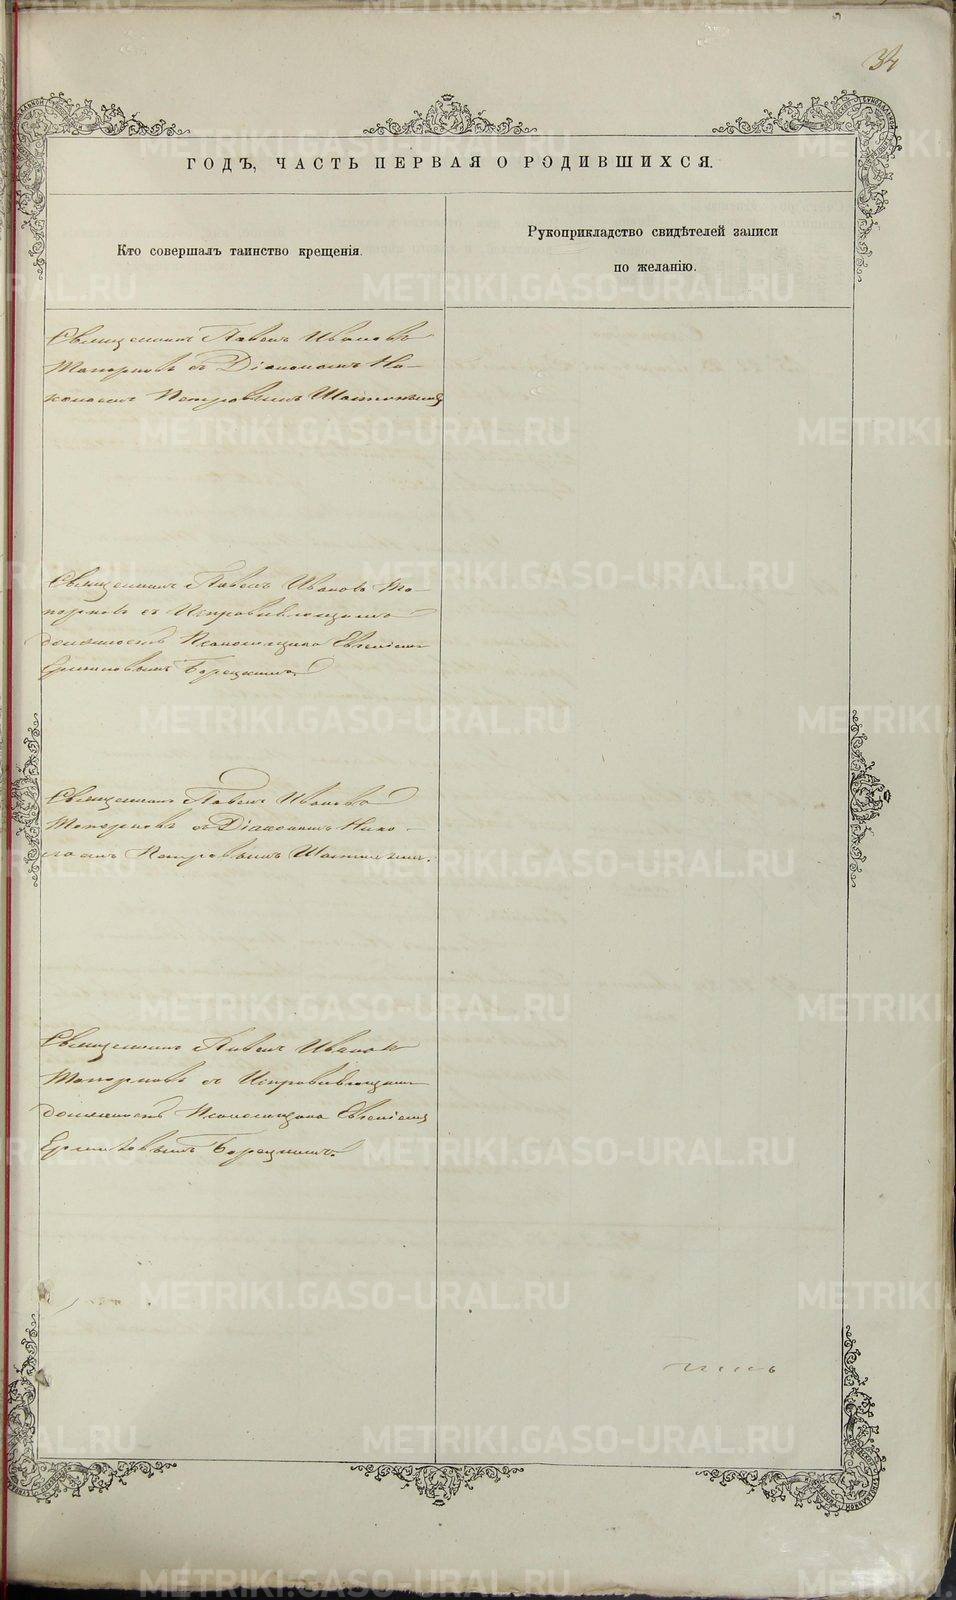 34
ГОДЪ, ЧАСТЬ ПЕРВАЯ О РОДИВШИХСЯ.
Кто совершалъ таинство крещенія.
Рукоприкладство свидѣтелей записи
по желанію.
Священникъ Павелъ Ивановъ
Топорковъ съ Діакономъ Ни-
колаемъ Петровымъ
Священникъ Павелъ Ивановъ То-
порковъ съ Исправляющимъ
должность Псаломщика Евгеніемъ
Борецкимъ.
Священникъ Павелъ Ивановъ
Топорковъ съ Діакономъ Нико-
лаемъ Петровымъ
Священникъ Павелъ Ивановъ
Топорковъ съ Исправляющимъ
должность Псаломщика Евгеніемъ
Борецкимъ.
METRIKI.GASO-URAL.RU